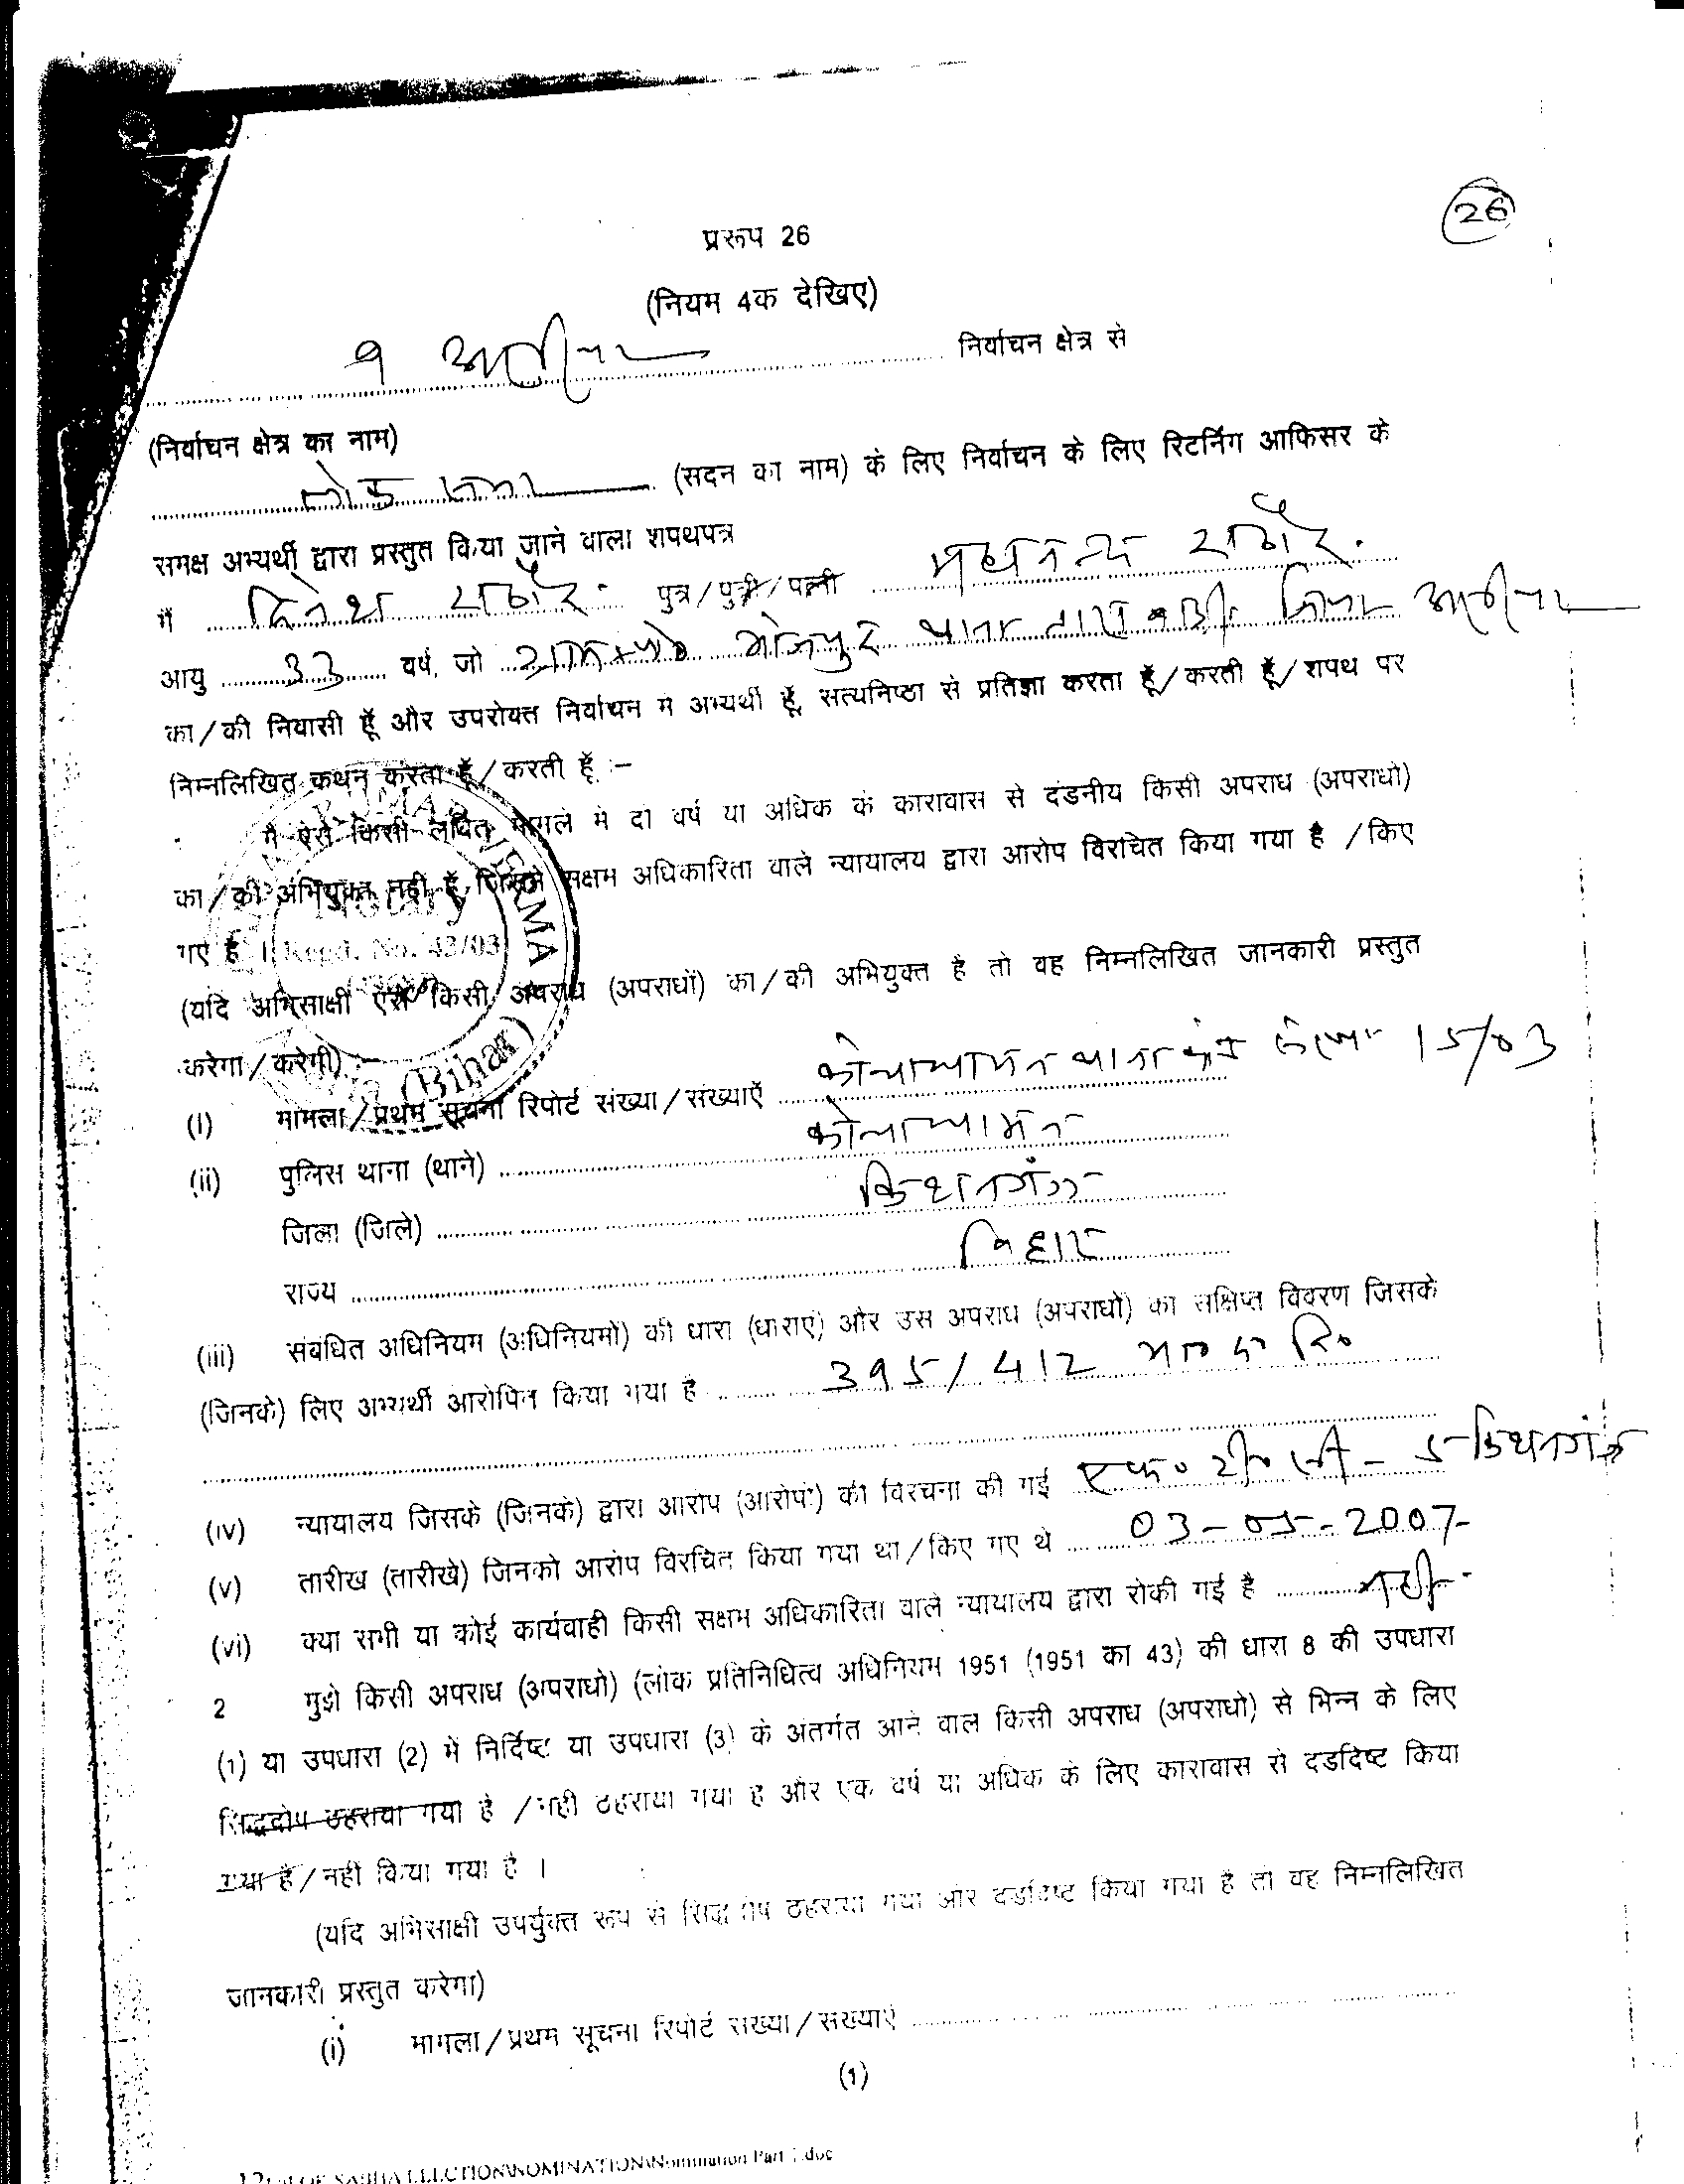 26
प्ररूप 26
(नियम 4क देखिए)
9 निर्वाचन क्षेत्र से
(निर्वाचन क्षेत्र का नाम)
लोक सभा (सदन का नाम) के लिए निर्वाचन के लिए रिटर्निंग आफिसर के
समक्ष अभ्यर्थी द्वारा प्रस्तुत किया जाने वाला शपथपत्र
मैं दिनेश राठौर पुत्र/पुत्री/पत्नी राठौर
आयु 33 वर्ष, जो थाना जिला
का/की निवासी हूँ और उपरोक्त निर्वाचन मे अभ्यर्थी हूँ, सत्यनिष्ठा से प्रतिज्ञा करता हूँ/करती हूँ/शपथ पर
निम्नलिखित कथन करता हूँ/करती हूँ :–
मै ऐसे किसी लंबित मामले मे दो वर्ष या अधिक के कारावास से दंडनीय किसी अपराध (अपराधो)
का/की अभियुक्त नही हूँ जिसमे सक्षम अधिकारिता वाले न्यायालय द्वारा आरोप विरचित किया गया है /किए
गए है । Regd. No. 43/03
(यदि अभिसाक्षी ऐसे किसी अपराध (अपराधों) का/की अभियुक्त है तो वह निम्नलिखित जानकारी प्रस्तुत
करेगा/करेगी) :–
(Bihar)
(i) मामला/प्रथम सूचना रिपोर्ट संख्या/संख्याएँ कोचाधामन थाना 15/03
(ii) पुलिस थाना (थाने) कोचाधामन
जिला (जिले) किशनगंज
राज्य बिहार
(iii) संबधित अधिनियम (अधिनियमों) की धारा (धाराएं) और उस अपराध (अपराधों) का संक्षिप्त विवरण जिसके
(जिनके) लिए अभ्यर्थी आरोपित किया गया है 395/412 भा० द० वि०
(iv) न्यायालय जिसके (जिनके) द्वारा आरोप (आरोपों) की विरचना की गई एफ० टी० सी– 5 किशनगंज
(v) तारीख (तारीखे) जिनको आरोप विरचित किया गया था/किए गए थे 03-05-2007
(vi) क्या सभी या कोई कार्यवाही किसी सक्षम अधिकारिता वाले न्यायालय द्वारा रोकी गई है नही
2 मुझे किसी अपराध (अपराधो) (लोक प्रतिनिधित्व अधिनियम 1951 (1951 का 43) की धारा 8 की उपधारा
(1) या उपधारा (2) में निर्दिष्ट या उपधारा (3) के अंतर्गत आने वाल किसी अपराध (अपराधो) से भिन्न के लिए
सिद्धदोष ठहराया गया है /नही ठहराया गया है और एक वर्ष या अधिक के लिए कारावास से दडदिष्ट किया
गया है/नहीं किया गया है ।
(यदि अभिसाक्षी उपर्युक्त रूप से सिद्धदोष ठहराया गया और दडदिष्ट किया गया है तो वह निम्नलिखित
जानकारी प्रस्तुत करेगा)
(i) मामला/प्रथम सूचना रिपोर्ट संख्या/संख्याएं
(1)